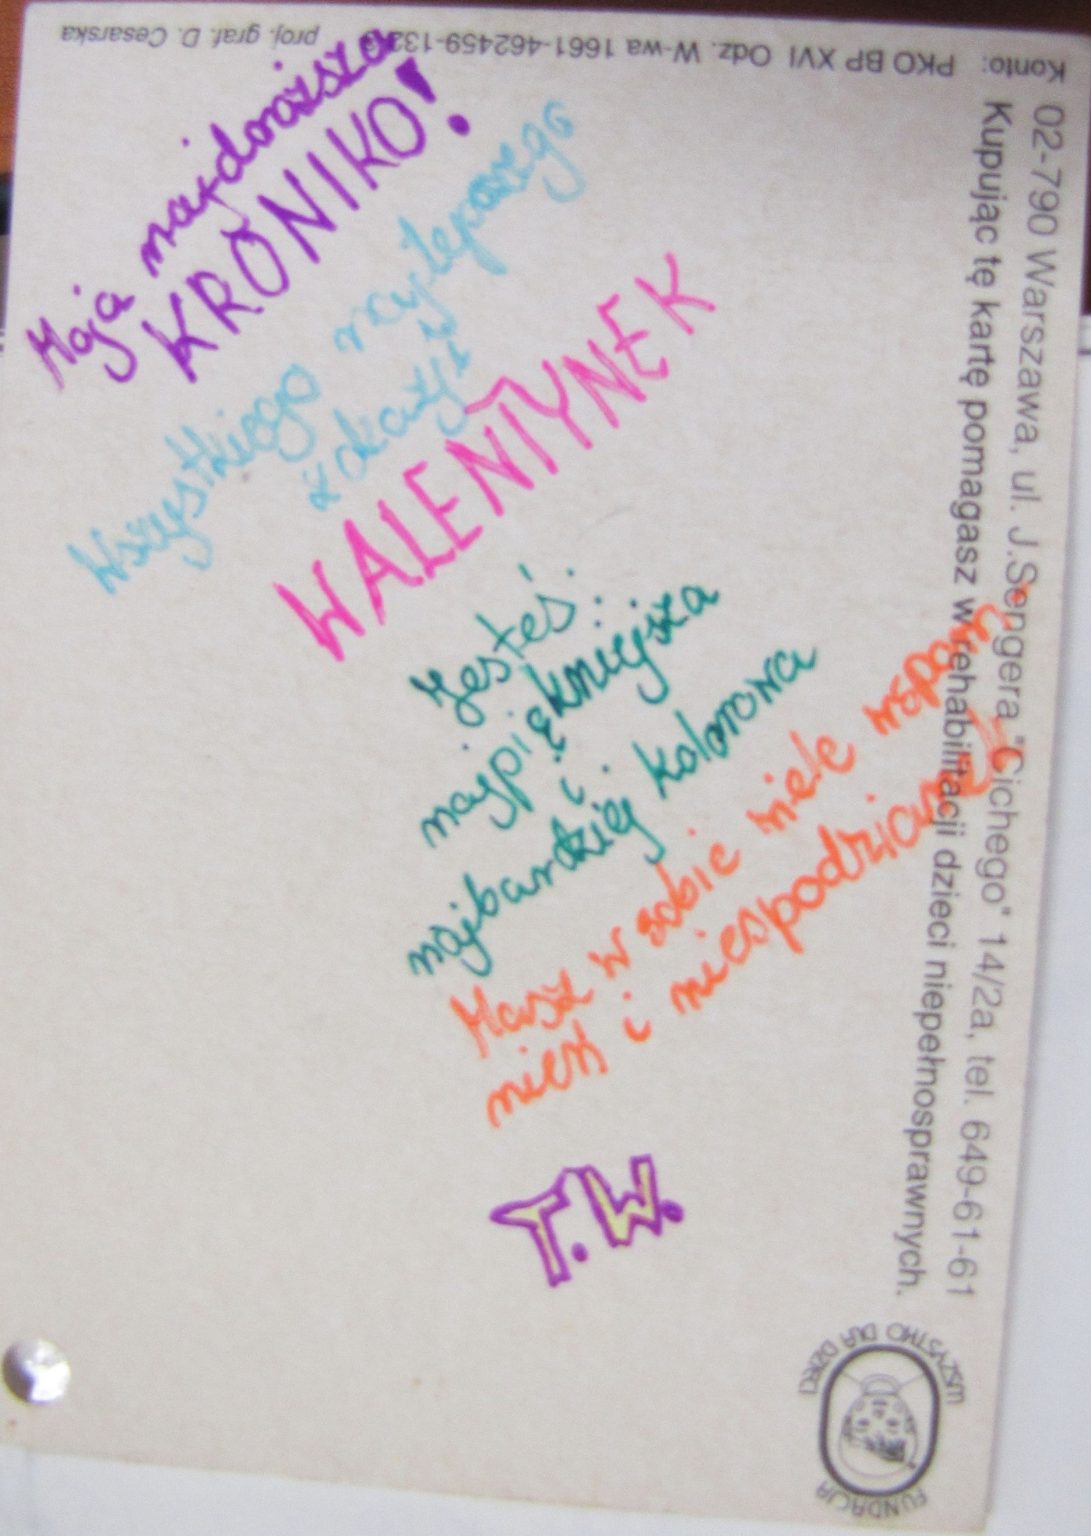 Moja najdroższa
KRONIKO!
Wszystkiego najlepszego
z okazji
WALENTYNEK
Jesteś:
najpiękniejsza
i
najbardziej kolorowa
Masz w sobie wiele wspom
nień i niespodzianek
T.W.
Kupując tę kartę pomagasz w rehabilitacji dzieci niepełnosprawnych.
02-790 Warszawa, ul. J.Sengera "Cichego" 14/2a, tel. 649-61-61
Konto: PKO BP XVI Odz. W-wa 1661-462459-132
proj. graf. D. Cesarska
FUNDACJA
WSZYSTKO DLA DZIECI